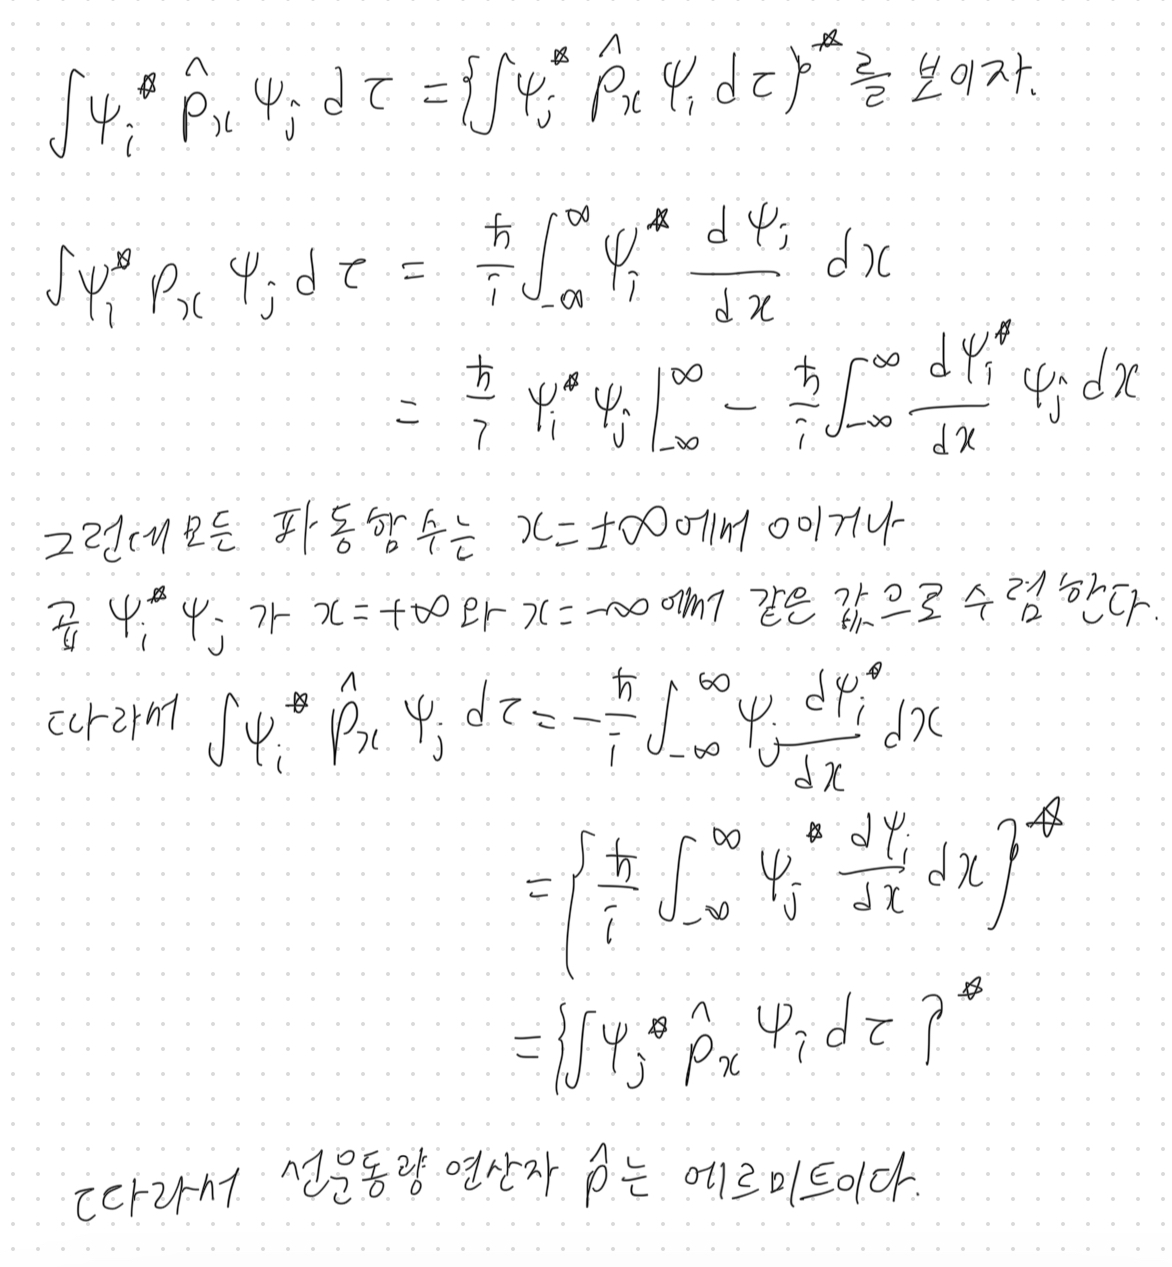 ∫ψᵢ* p̂ₓ ψⱼ dτ = {∫ψⱼ* p̂ₓ ψᵢ dτ}* 를 보이자.
∫ψᵢ* pₓ ψⱼ dτ = ħ/i ∫_{-∞}^{∞} ψᵢ* dψⱼ/dx dx
= ħ/i ψᵢ* ψⱼ |_{-∞}^{∞} - ħ/i ∫_{-∞}^{∞} dψᵢ*/dx ψⱼ dx
그런데 모든 파동함수는 x=±∞에서 0이거나
곱 ψᵢ* ψⱼ 가 x=+∞와 x=-∞에서 같은 값으로 수렴한다.
따라서 ∫ψᵢ* p̂ₓ ψⱼ dτ = -ħ/i ∫_{-∞}^{∞} ψⱼ dψᵢ*/dx dx
= {ħ/i ∫_{-∞}^{∞} ψⱼ* dψᵢ/dx dx}*
= {∫ψⱼ* p̂ₓ ψᵢ dτ}*
따라서 선운동량 연산자 p̂는 에르미트이다.